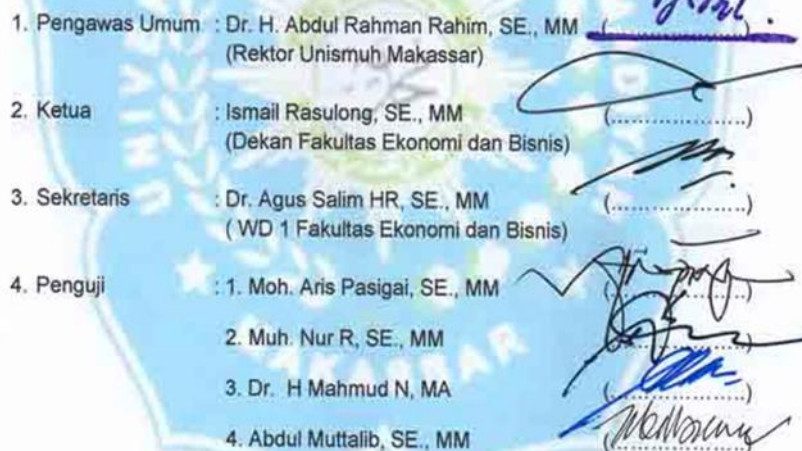 1. Pengawas Umum : Dr. H. Abdul Rahman Rahim, SE., MM (....................)
(Rektor Unismuh Makassar)
2. Ketua : Ismail Rasulong, SE., MM (....................)
(Dekan Fakultas Ekonomi dan Bisnis)
3. Sekretaris : Dr. Agus Salim HR, SE., MM (....................)
( WD 1 Fakultas Ekonomi dan Bisnis)
4. Penguji : 1. Moh. Aris Pasigai, SE., MM (....................)
2. Muh. Nur R, SE., MM (....................)
3. Dr. H Mahmud N, MA (....................)
4. Abdul Muttalib, SE., MM (....................)
MAKASSAR